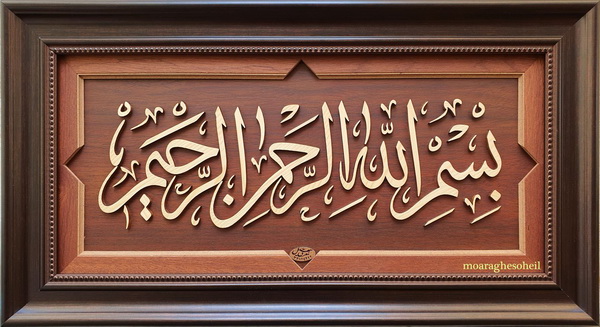 بسم الله الرحمن الرحیم
moaraghesoheil